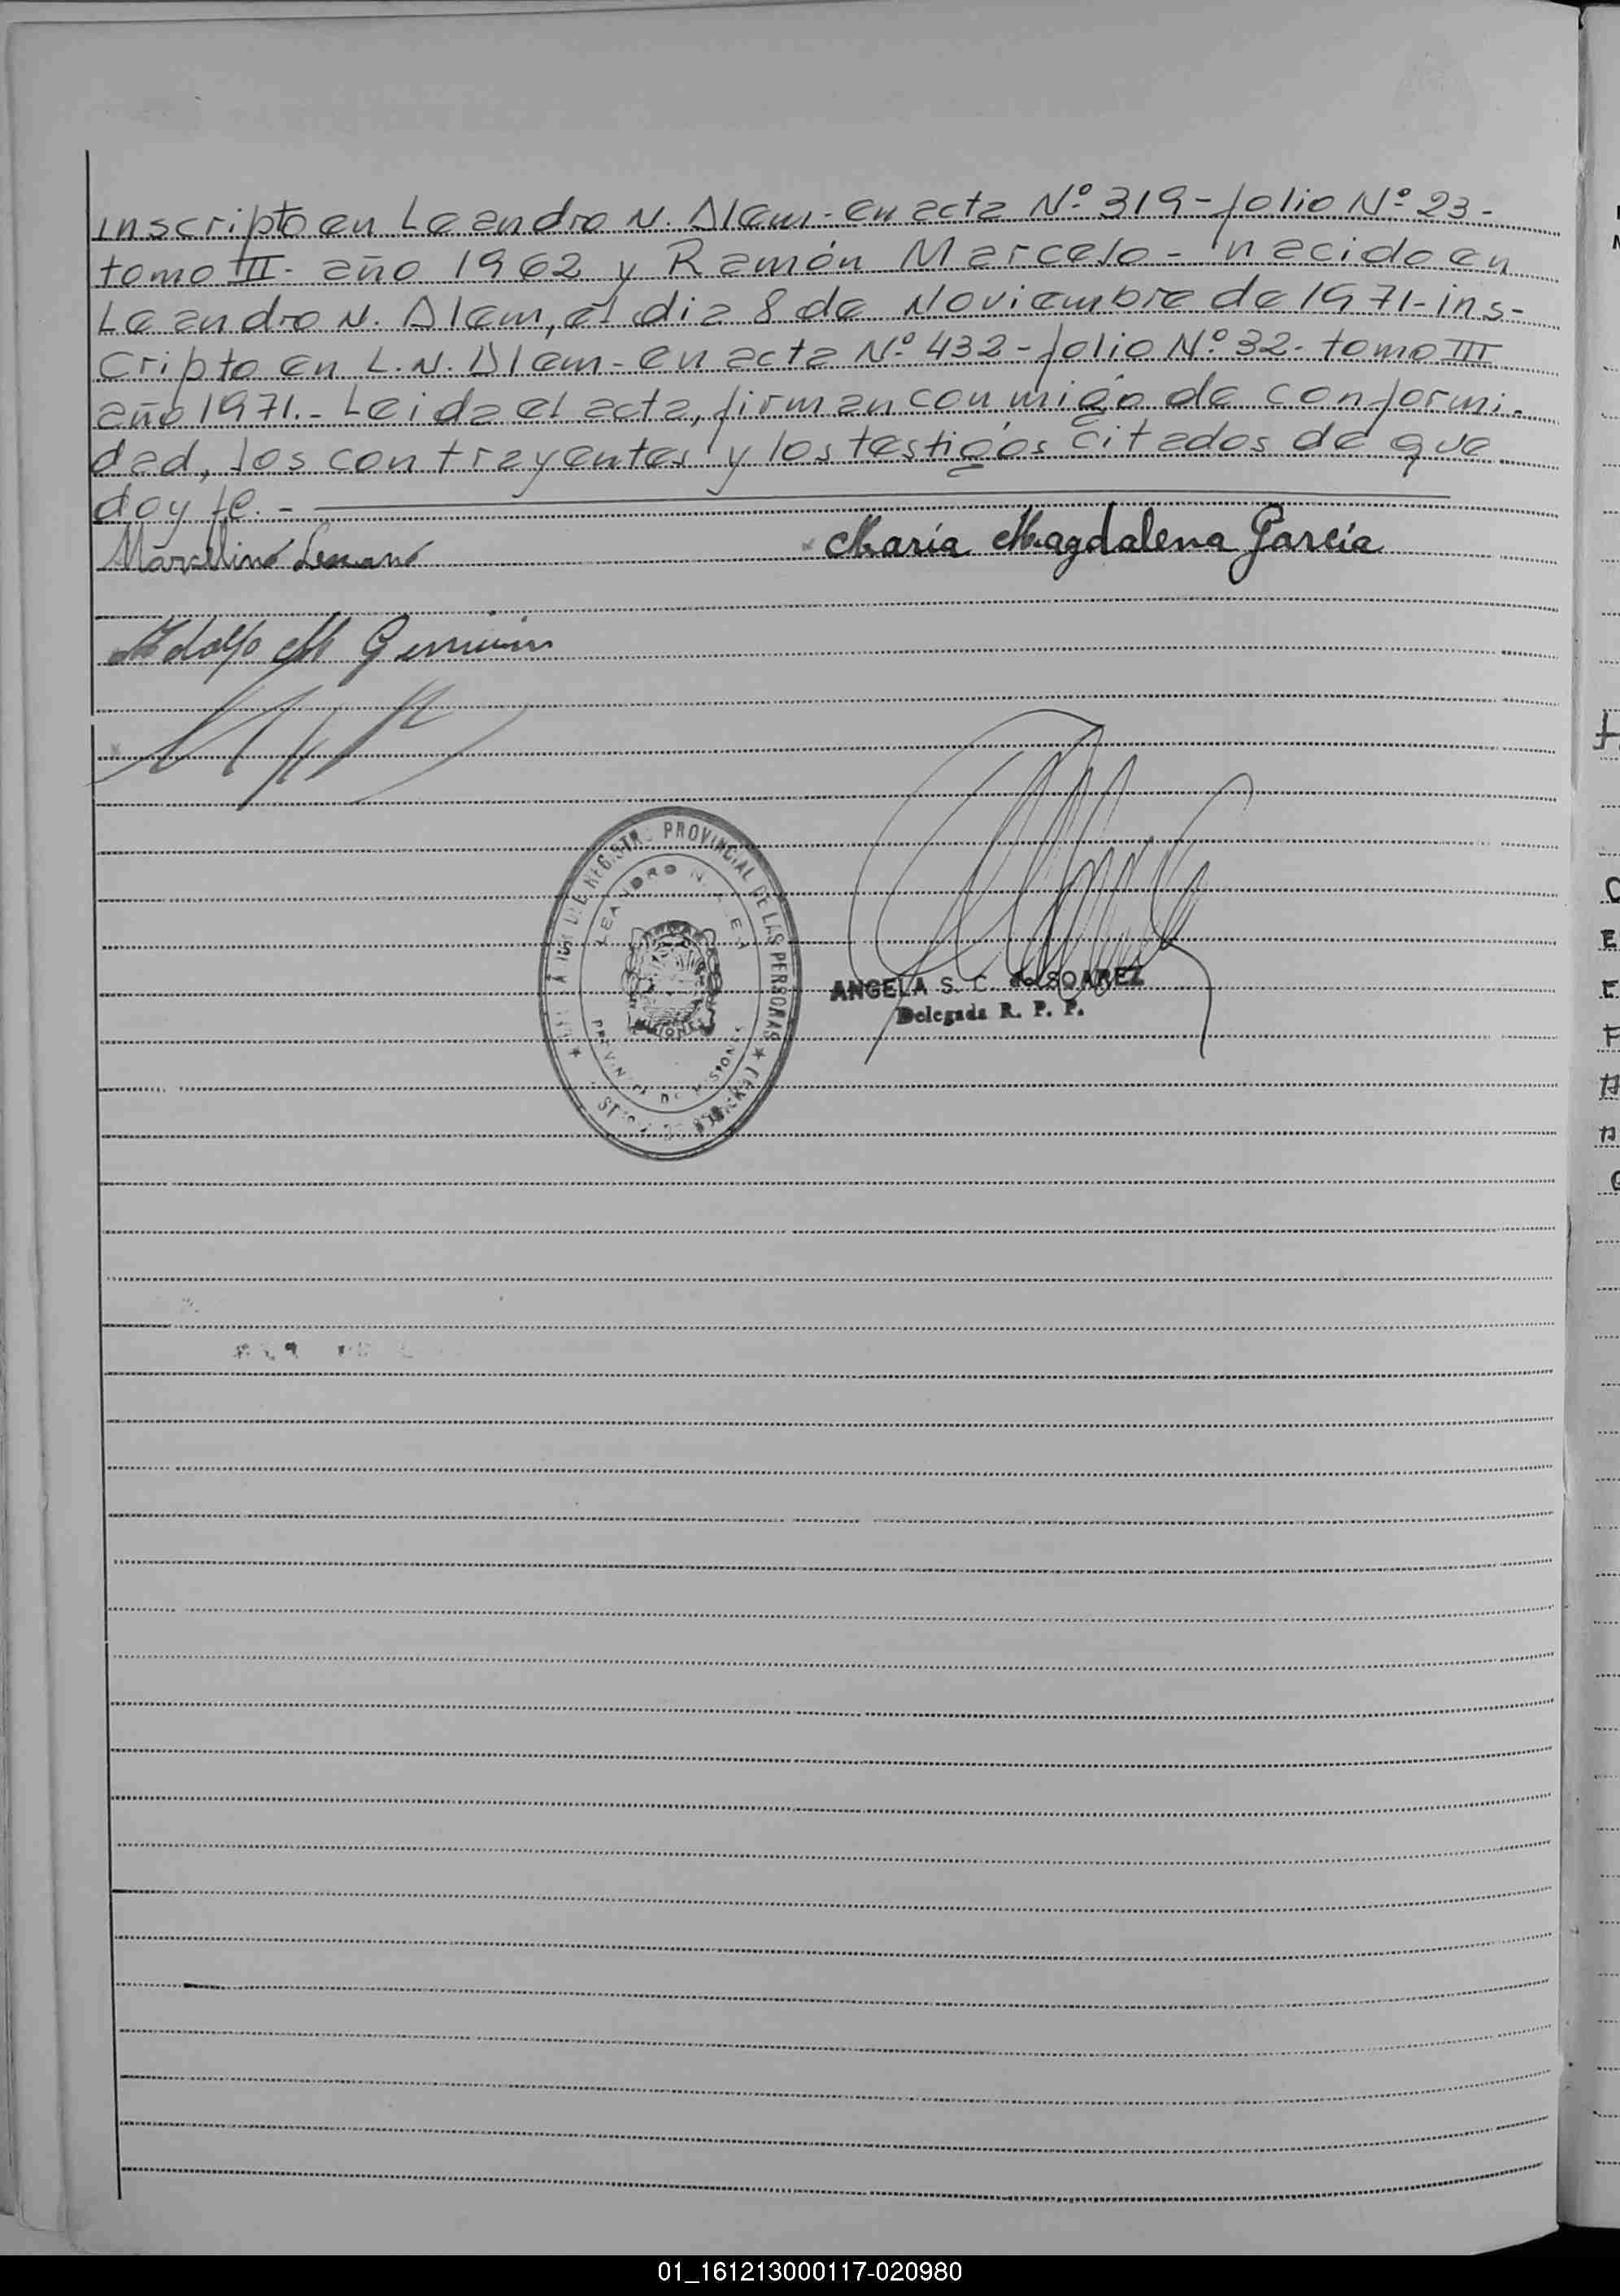 inscripto en Leandro N. Alem - en acta Nº 319 - folio Nº 23 -
tomo III - año 1962 y Ramón Marcelo - nacido en
Leandro N. Alem, el dia 8 de Noviembre de 1971 - ins-
cripto en L. N. Alem - en acta Nº 432 - folio Nº 32 - tomo III
año 1971. - Leida el acta, firman conmigo de conformi-
dad, los contrayentes y los testigos citados de que
doy fe. -
Marcelino
María Magdalena García
Adolfo M
REGISTRO PROVINCIAL DE LAS PERSONAS
LEANDRO N. ALEM
PROVINCIA DE MISIONES
MISIONES
ANGELA S. C. de SOAREZ
Delegada R. P. P.
01_161213000117-020980